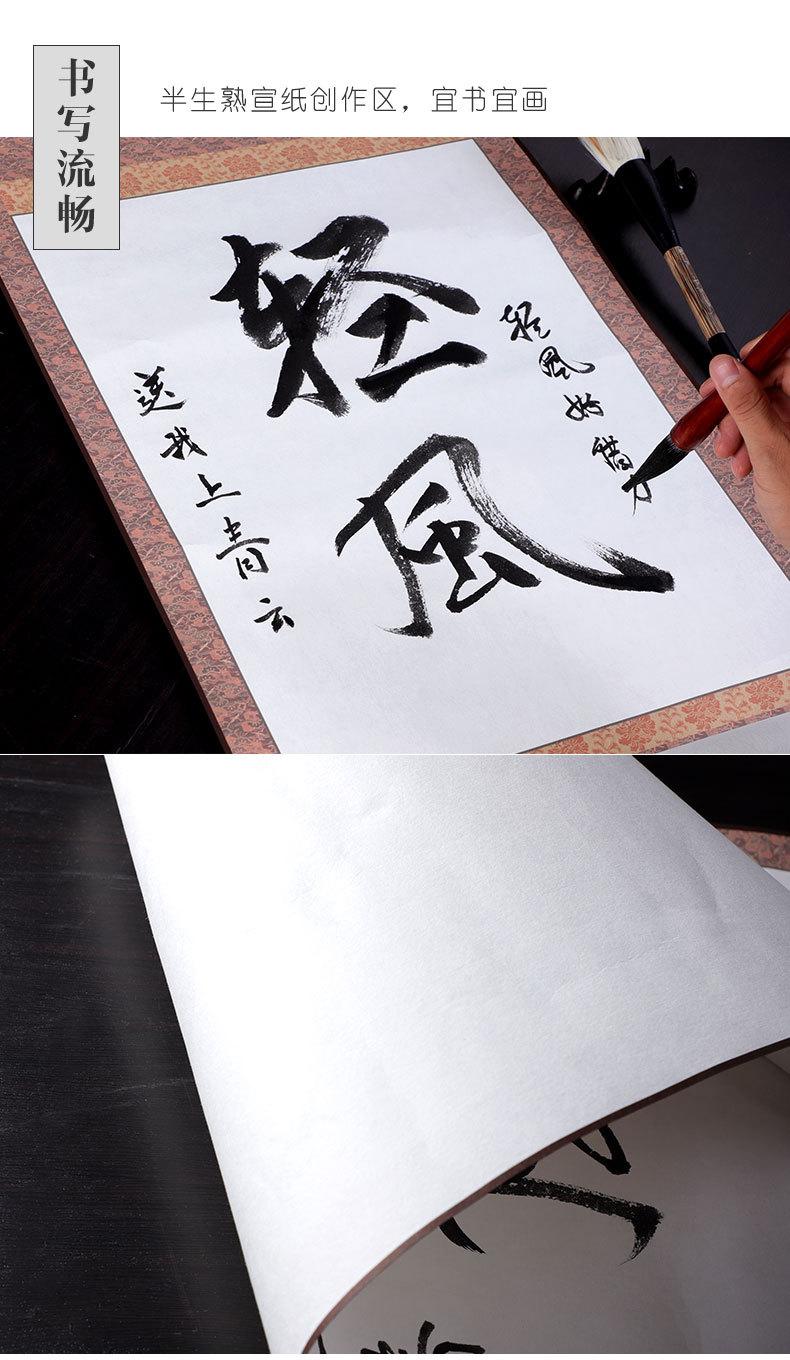 书写流畅
半生熟宣纸创作区，宜书宜画
轻風
轻風好借力
送我上青云